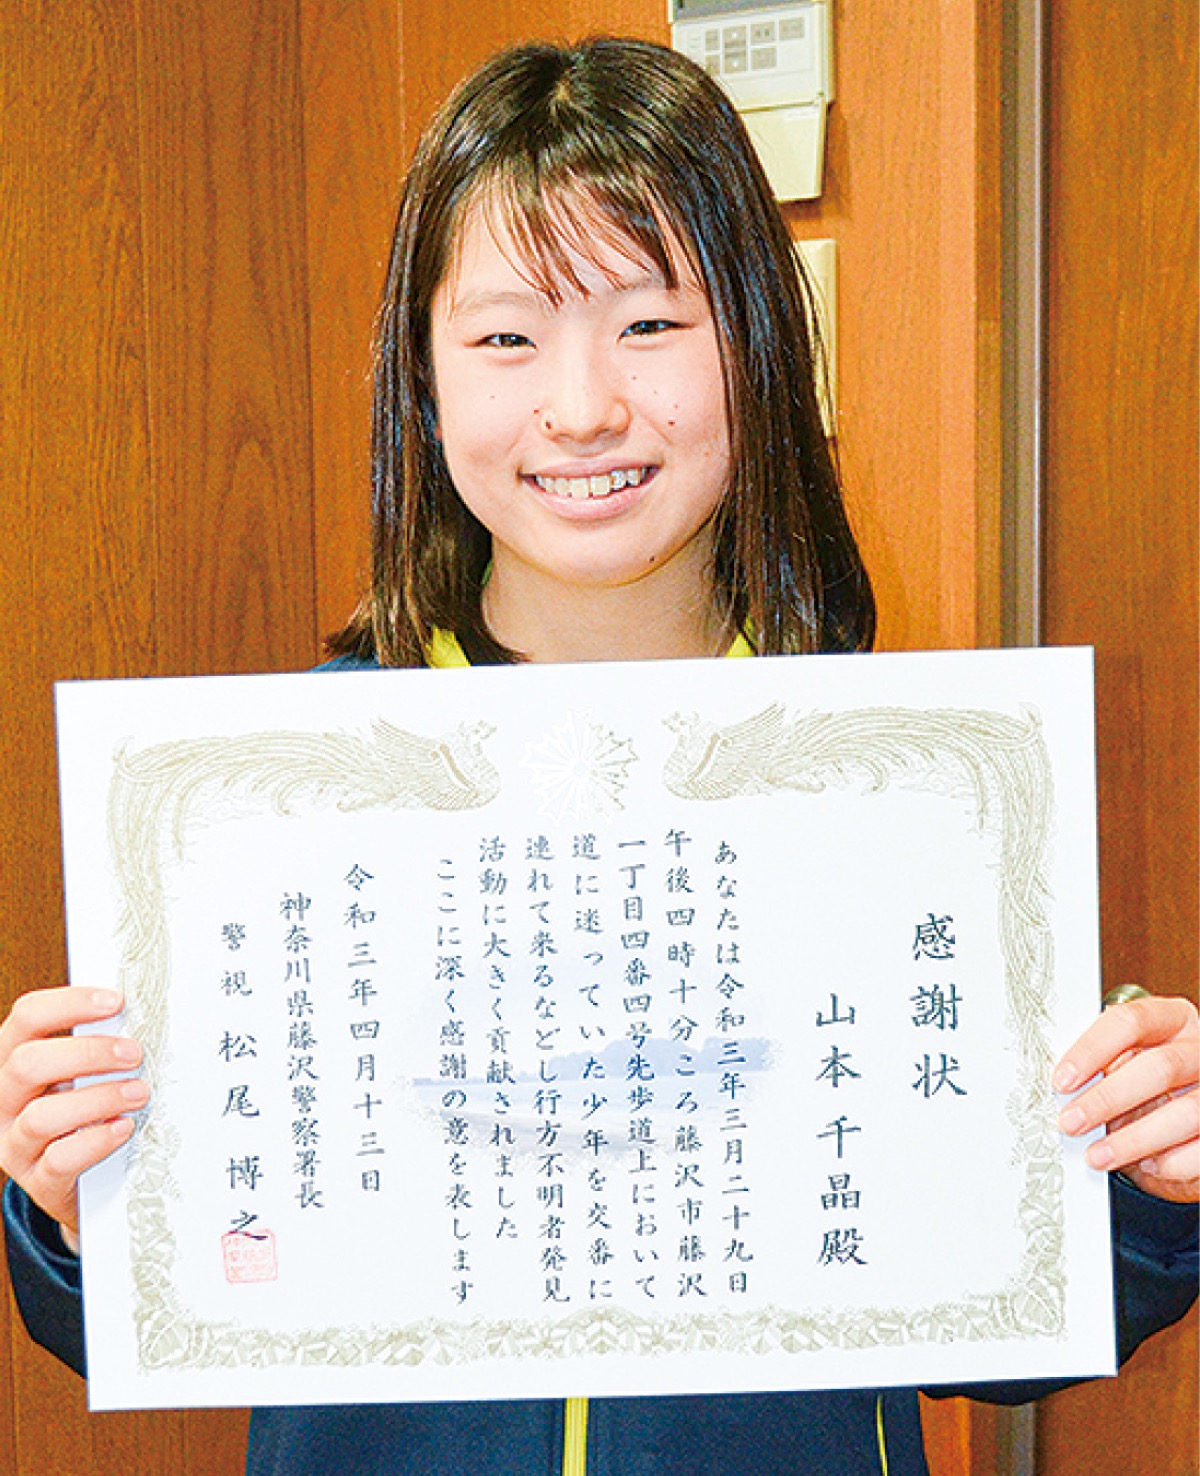 感謝状
山本千晶殿
あなたは令和三年三月二十九日
午後四時十分ころ藤沢市藤沢
一丁目四番四号先歩道上において
道に迷っていた少年を交番に
連れて来るなどし行方不明者発見
活動に大きく貢献されました
ここに深く感謝の意を表します
令和三年四月十三日
神奈川県藤沢警察署長
警視 松尾博之